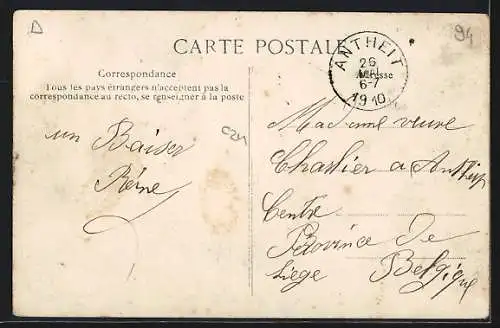 D
94
CARTE POSTALE
ANTHEIT
26
6-7
1910
Adresse
Correspondance
Tous les pays étrangers n'acceptent pas la
correspondance au recto, se renseigner à la poste
un Baiser
Reine
Madame veuve
Charlier a Antheit
Centre
Province de
Liège Belgique